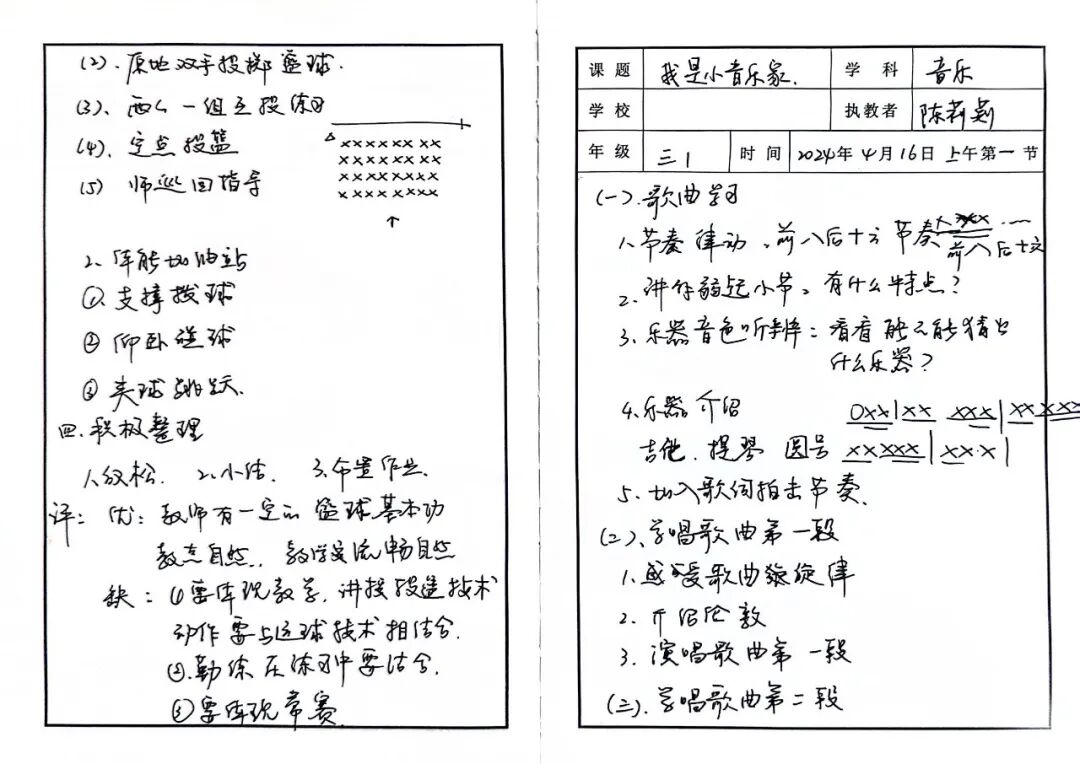 (2)、原地双手投掷篮球.
(3)、两人一组互投练习
(4)、定点投篮
(5) 师巡回指导
××××××××
××××××××
××××××××
××××××××
2、体能加油站
①支撑拨球
②仰卧
③夹球跳跃.
四.积极整理
1.放松. 2.小结. 3.布置作业.
评: 优: 教师有一定的篮球基本功
教态自然.. 教学流畅自然
缺: ①要体现教学. 讲授投篮技术
动作要与运球技术相结合.
②.勤练 在练习中要结合.
③要体现常赛.
课题 我是小音乐家. 学科 音乐
学校 执教者 陈莉莉
年级 三1 时间 2024年4月16日 上午第一节
(一).歌曲学习
1.节奏律动、前八后十六 节奏
前八后十六
2.讲解弱起小节。有什么特点?
3.乐器音色听辨: 看看能不能猜出
什么乐器?
4.乐器介绍 0××|×× ×××|×× ×××
吉他. 提琴 圆号 ×××××|××·×|
5.加入歌词拍击节奏.
(二)、学唱歌曲第一段
1.感受歌曲旋律
2.介绍伦敦
3.演唱歌曲第一段
(三).学唱歌曲第二段